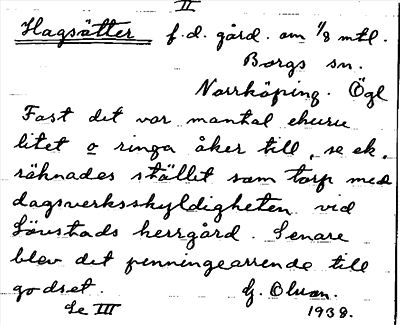 II
Hagsätter f.d. gård. om 1/8 mtl.
Borgs sn.
Norrköping. Ögl
Fast det var mantal ehuru
litet o ringa åker till, se ek.
räknades stället som torp med
dagsverksskyldigheten vid
Löfstads herrgård. Senare
blev det penningearrende till
godset. G. Olsson.
Se III 1938.